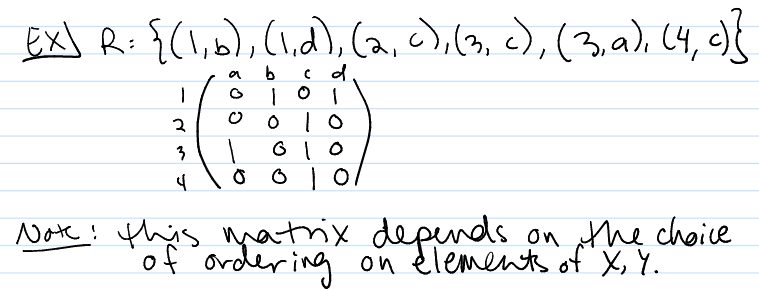 EX) R: {(1,b), (1,d), (2, c), (3, c), (3,a), (4, c)}
a b c d
1 0 1 0 1
2 0 0 1 0
3 1 0 1 0
4 0 0 1 0
Note: this matrix depends on the choice
of ordering on elements of X, Y.